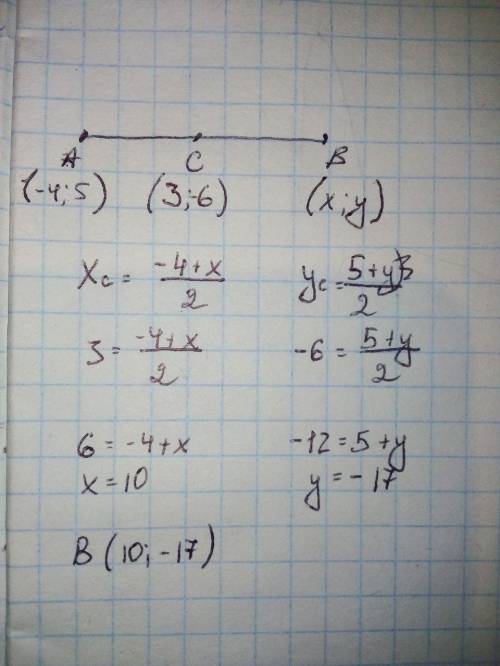 A C B
(-4; 5) (3; -6) (x; y)
Xc = (-4+x)/2 yc = (5+y)/2
3 = (-4+x)/2 -6 = (5+y)/2
6 = -4+x -12 = 5+y
x = 10 y = -17
B (10; -17)